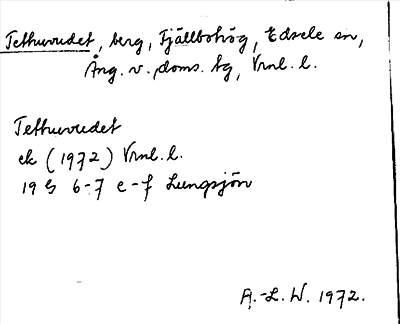 Tethuvudet, berg, Fjällbohög, Edsele sn,
Ång. v. doms. tg, Vrnl. l.
Tethuvudet
ek (1972) Vrnl. l.
19 G 6-7 e-f Lungsjön
A.-L. W. 1972.